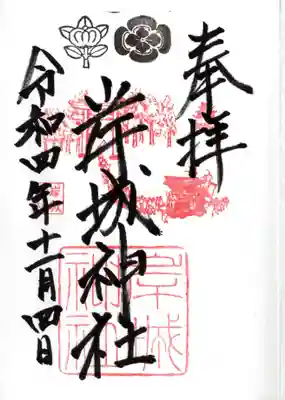 奉拝
岸城神社
令和四年十一月四日
岸城
神社